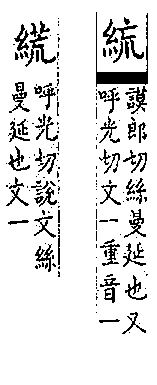 謨郎切絲曼延也又
呼光切文一重音一
呼光切說文絲
曼延也文一